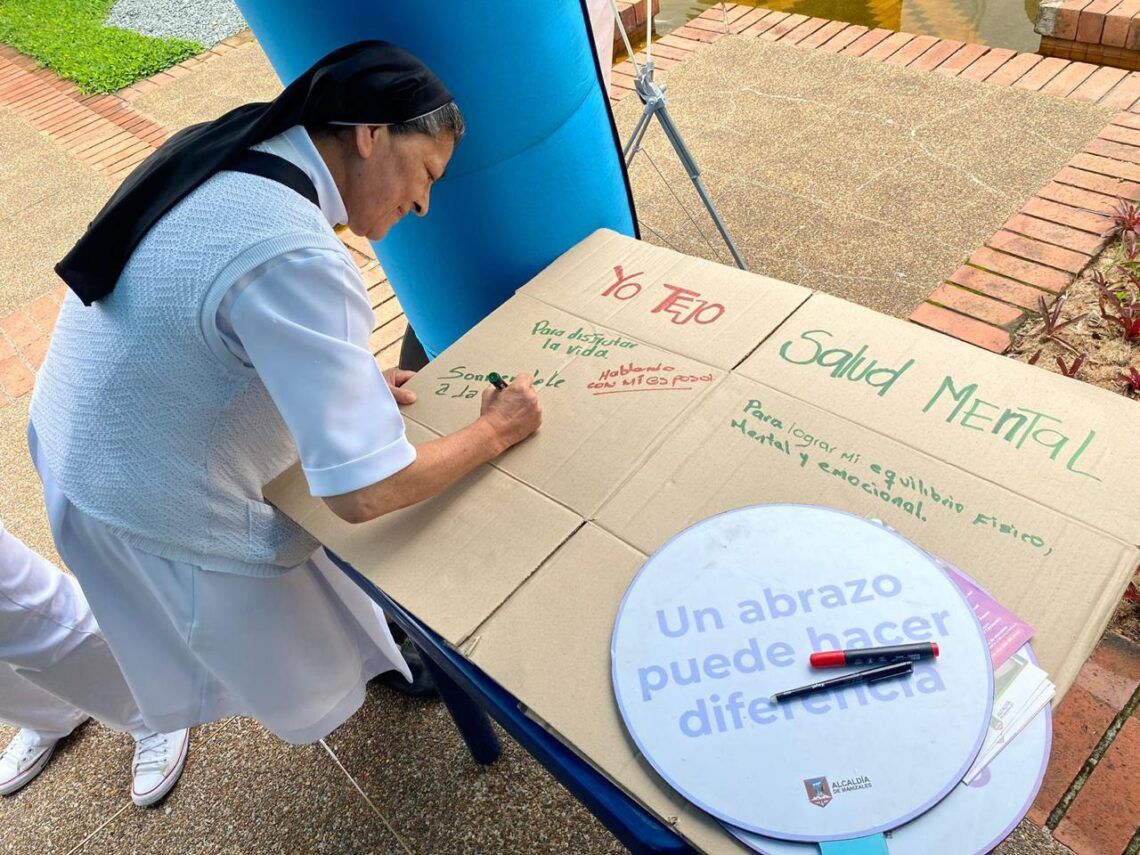 Yo TEJO
Salud MENTAL
Para disfrutar
la vida.
Hablando
con Mi esposa
Sonriendole
a la
Para lograr Mi equilibrio Físico,
Mental y emocional.
Un abrazo
puede hacer
diferencia
ALCALDÍA
DE MANIZALES